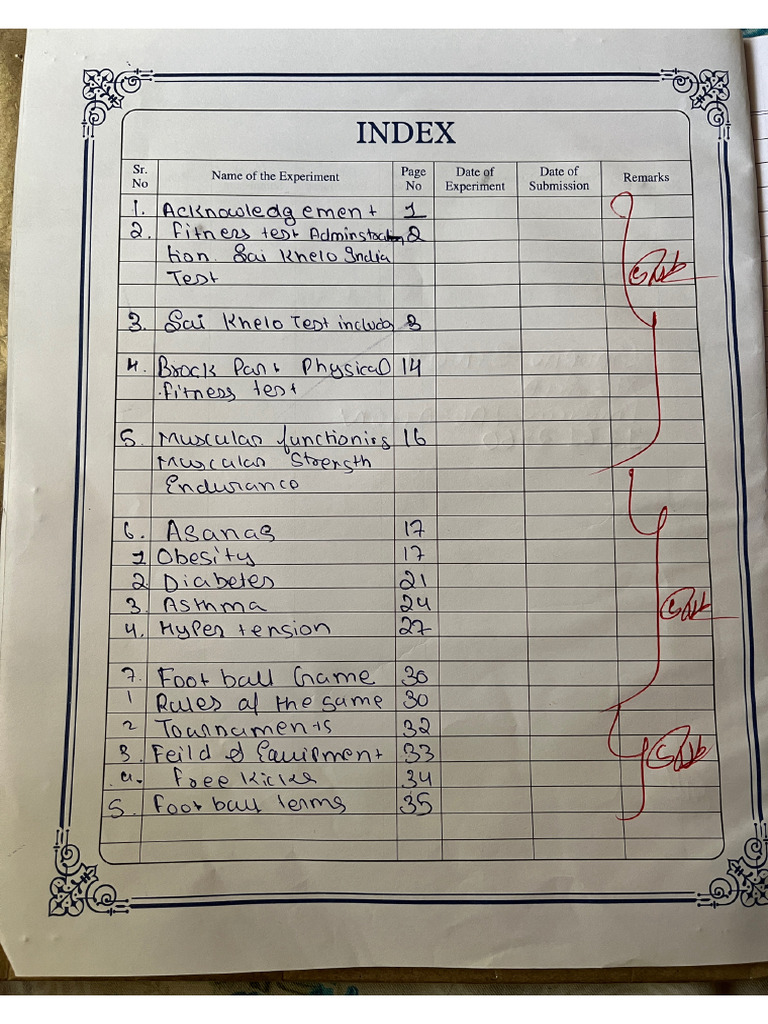 INDEX
Sr. No Name of the Experiment Page No Date of Experiment Date of Submission Remarks
1. Acknowledgement 1
2. Fitness test Adminstra 2
tion. Sai Khelo India
Test
3. Sai Khelo Test includes 3
4. Brock Part Physical 14
fitness test
5. Muscular functioning 16
Muscular Strength
Endurance
6. Asanas 17
1 Obesity 17
2 Diabetes 21
3. Asthma 24
4. Hyper tension 27
7. Foot ball Game 30
1 Rules of the game 30
2 Tournaments 32
3. Feild & Equipment 33
4. free kicks 34
5. Foot ball terms 35